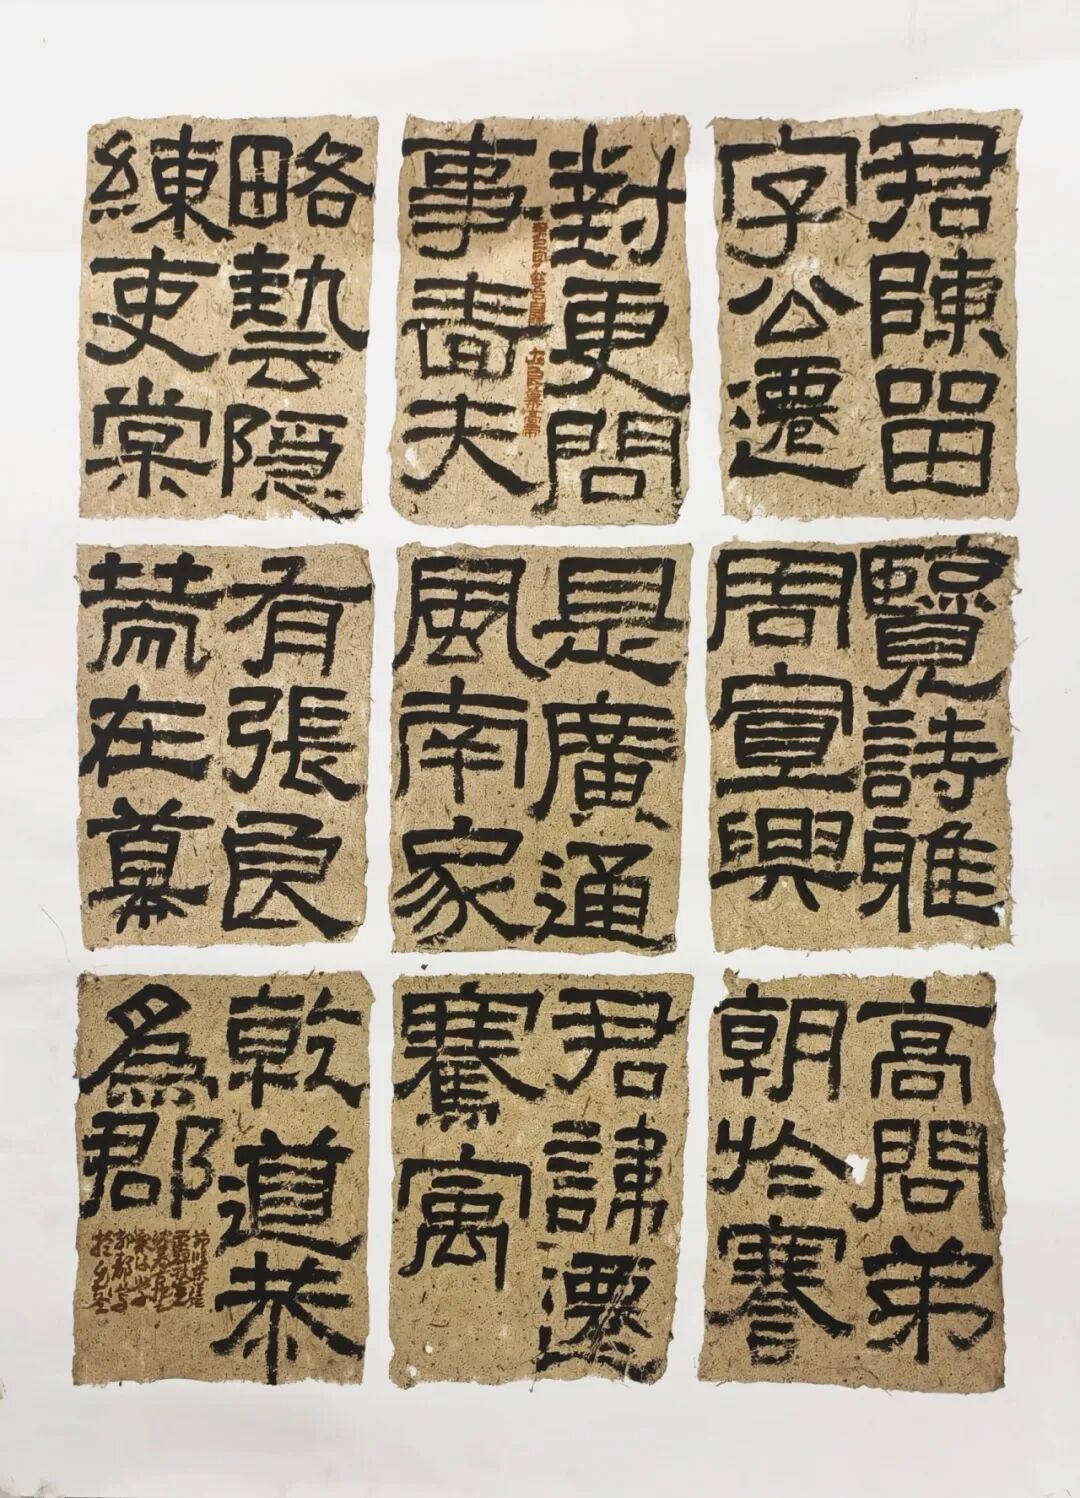 君陳留
字公遷
對更問
事嗇夫
略藝隱
練吏棠
覽詩雅
周宣興
是廣通
風南家
有張良
荒在幕
高問弟
朝於謇
君諱遷
騫寓
乾道恭
爲郡